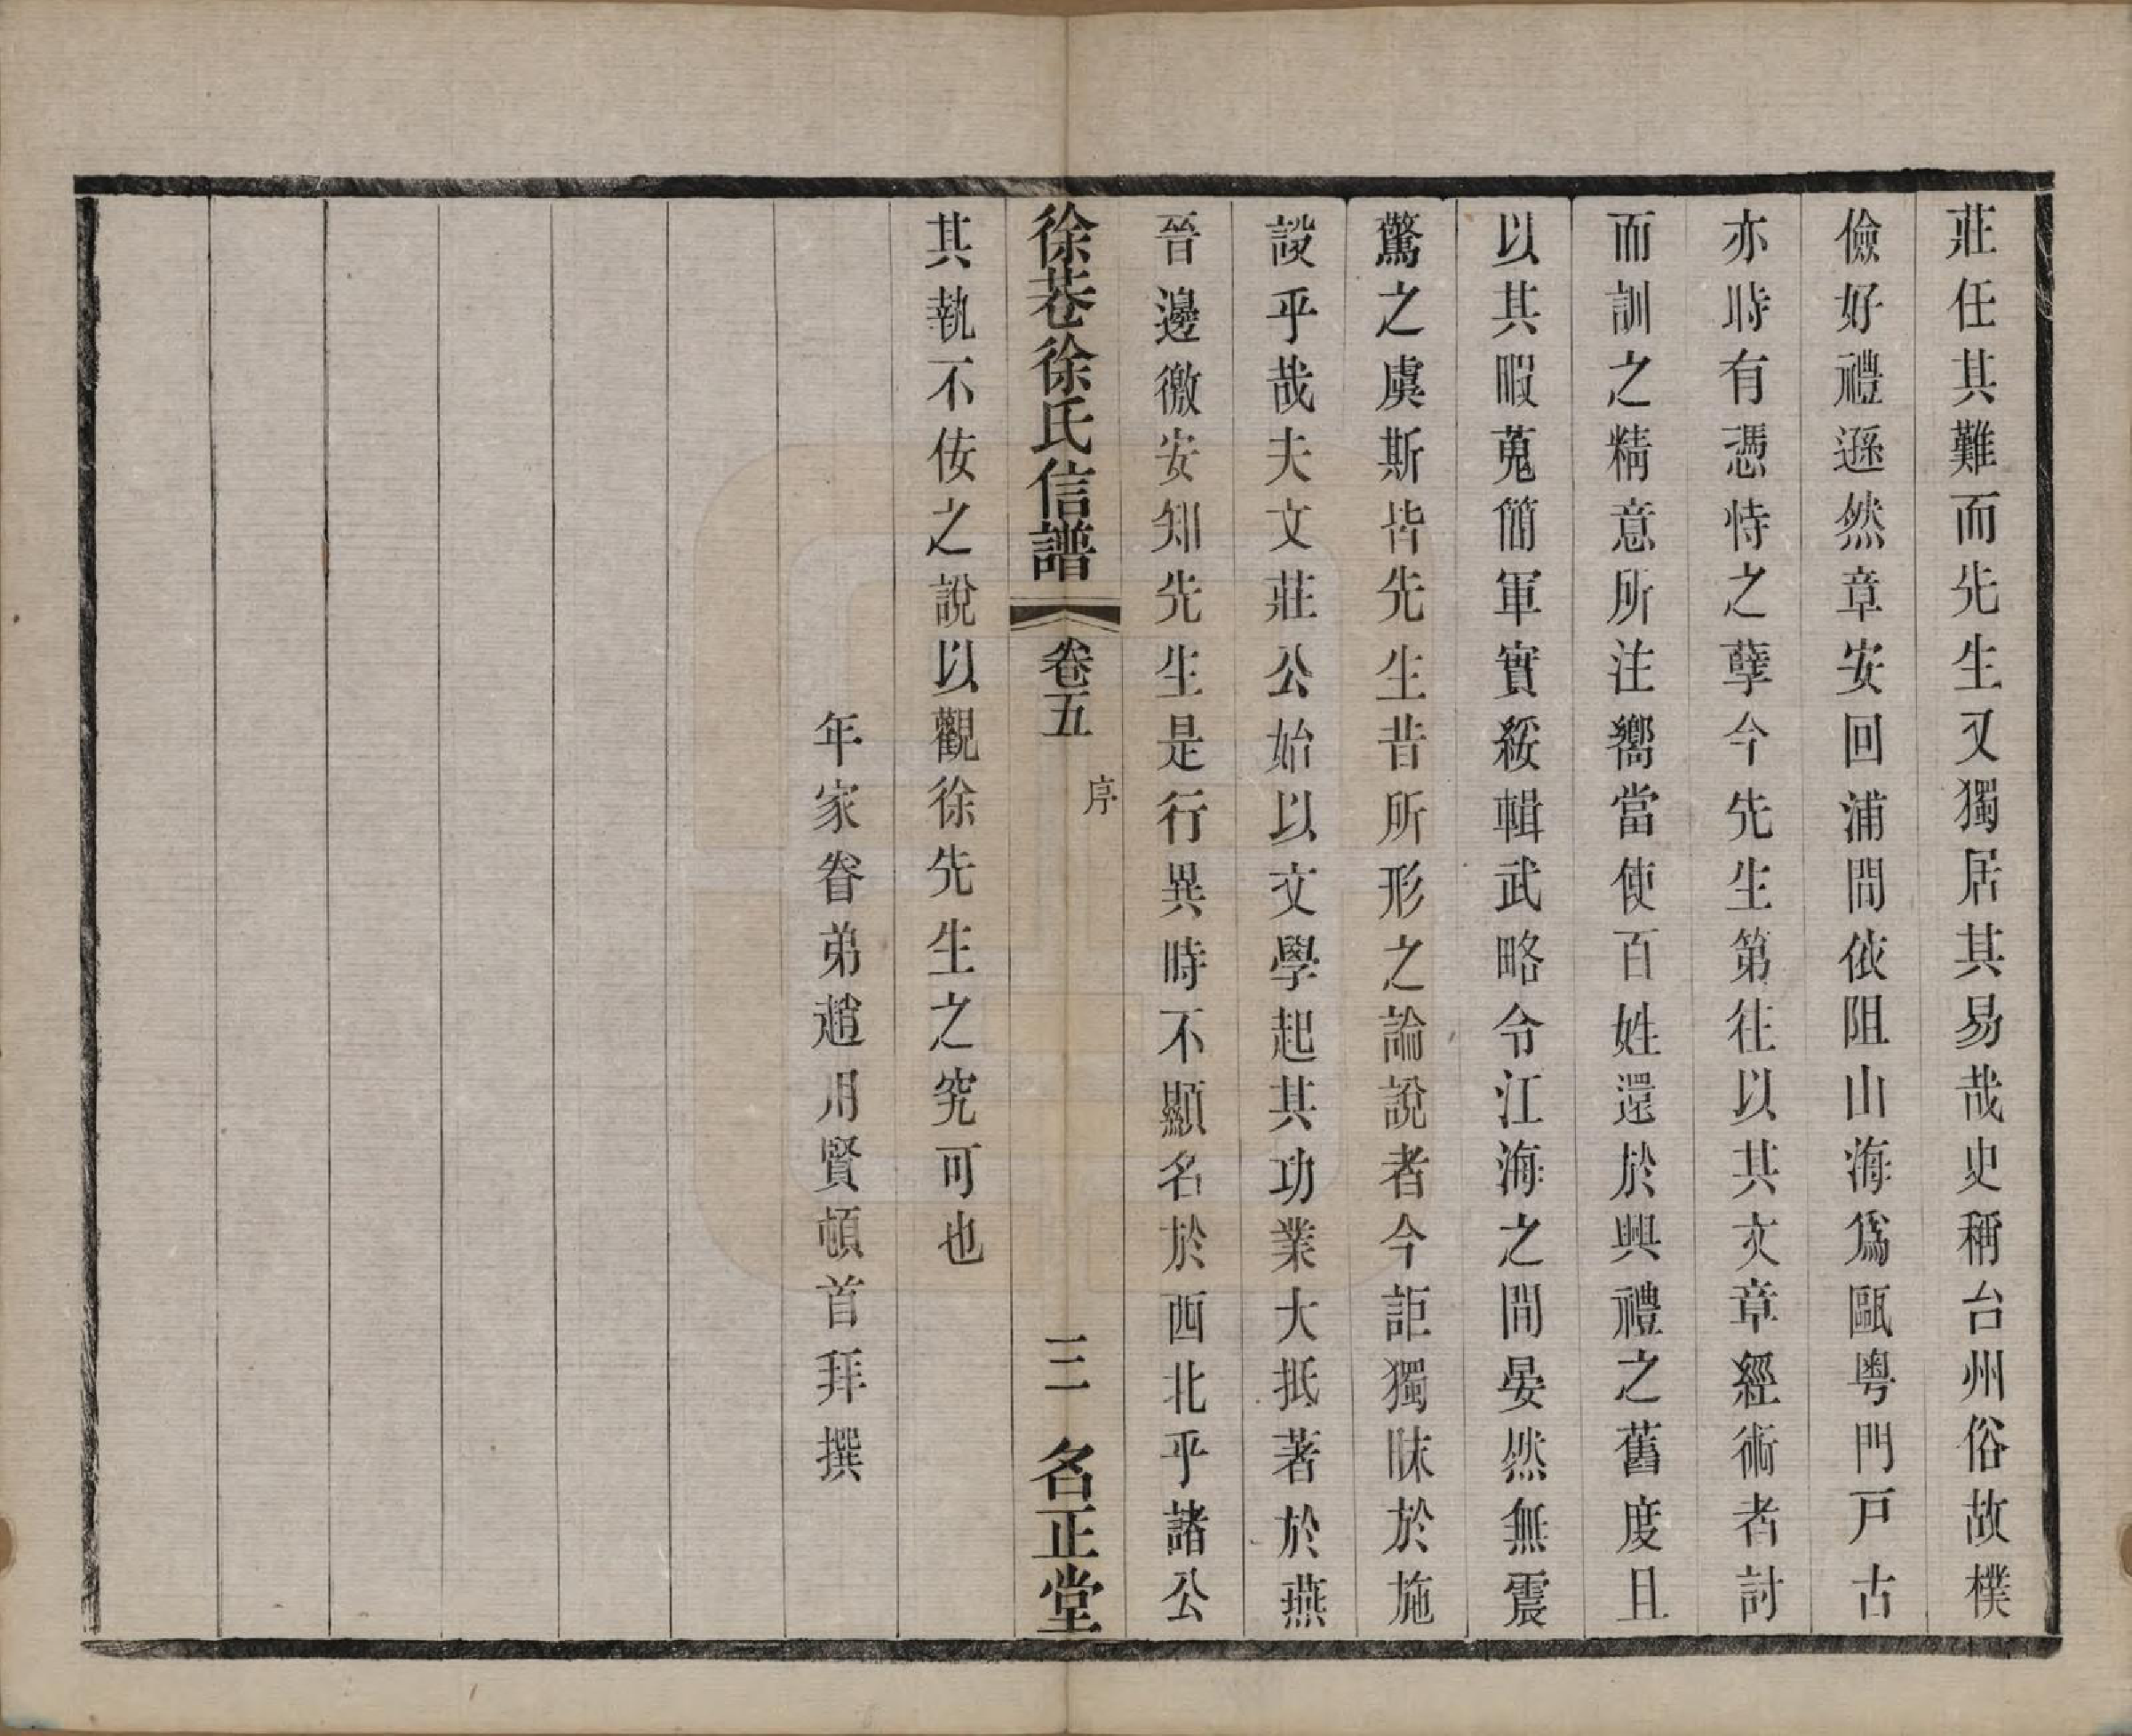 莊任其難而先生又獨居其易哉史稱台州俗故樸
儉好禮遜然章安回浦間依阻山海爲甌粤門戸古
亦時有憑恃之孽今先生第往以其文章經術者討
而訓之精意所注嚮當使百姓還於興禮之舊度且
以其暇蒐簡軍實綏輯武略令江海之間晏然無震
驚之虞斯皆先生昔所形之論說者今詎獨昧於施
設乎哉夫文莊公始以文學起其功業大抵著於燕
晉邊徼安知先生是行異時不顯名於西北乎諸公
徐巷徐氏信譜 卷五 序 三 名正堂
其執不佞之說以觀徐先生之究可也
年家眷弟趙用賢頓首拜撰